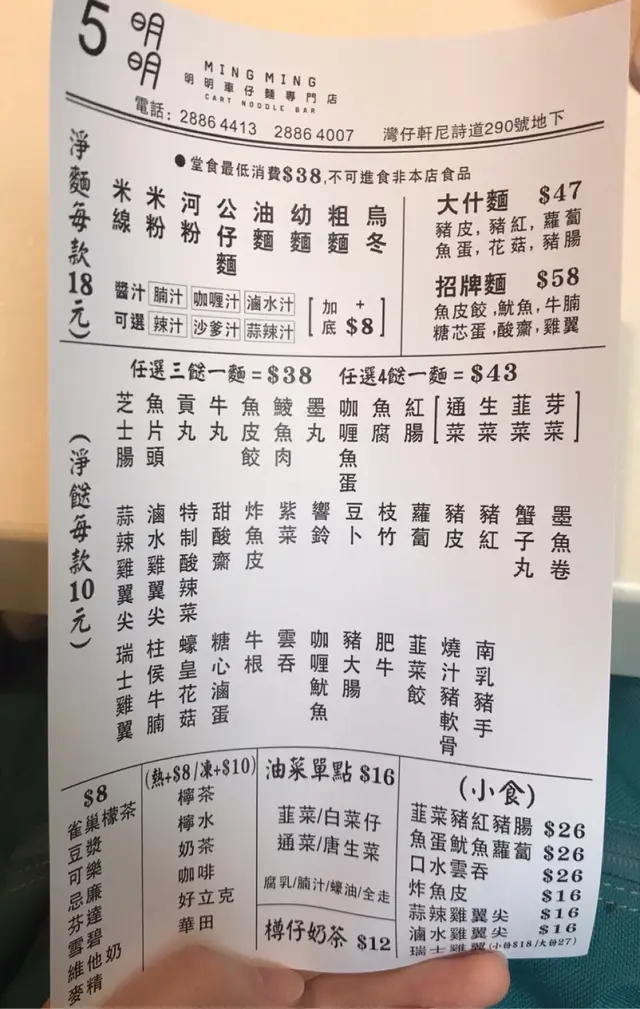 5 明明
MING MING
明明車仔麵專門店
CART NOODLE BAR
電話: 2886 4413 2886 4007 灣仔軒尼詩道290號地下
●堂食最低消費$38,不可進食非本店食品
淨麵每款18元)
米線 米粉 河粉 公仔麵 油麵 幼麵 粗麵 烏冬
醬汁可選 腩汁 咖喱汁 滷水汁
辣汁 沙爹汁 蒜辣汁
[加底 + $8]
大什麵 $47
豬皮,豬紅,蘿蔔
魚蛋,花菇,豬腸
招牌麵 $58
魚皮餃,魷魚,牛腩
糖芯蛋,酸齋,雞翼
任選三餸一麵=$38 任選4餸一麵=$43
(淨餸每款10元)
芝士腸 魚片頭 貢丸 牛丸 魚皮餃 鯪魚肉 墨丸 咖喱魚蛋 魚腐 紅腸 [通菜 生菜 韮菜 芽菜]
蒜辣雞翼尖 滷水雞翼尖 特制酸辣菜 甜酸齋 炸魚皮 紫菜 響鈴 豆卜 枝竹 蘿蔔 豬皮 豬紅 蟹子丸 墨魚卷
瑞士雞翼 柱侯牛腩 蠔皇花菇 糖心滷蛋 牛根 雲吞 咖喱魷魚 豬大腸 肥牛 韮菜餃 燒汁豬軟骨 南乳豬手
$8
雀巢檬茶
豆漿
可樂
忌廉
芬達
雪碧
維他奶
麥精
(熱+$8/凍+$10)
檸茶
檸水
奶茶
咖啡
好立克
華田
油菜單點 $16
韮菜/白菜仔
通菜/唐生菜
腐乳/腩汁/蠔油/全走
樽仔奶茶 $12
(小食)
韮菜豬紅豬腸 $26
魚蛋魷魚蘿蔔 $26
口水雲吞 $26
炸魚皮 $16
蒜辣雞翼尖 $16
滷水雞翼尖 $16
瑞士雞翼 (小份$18/大份27)